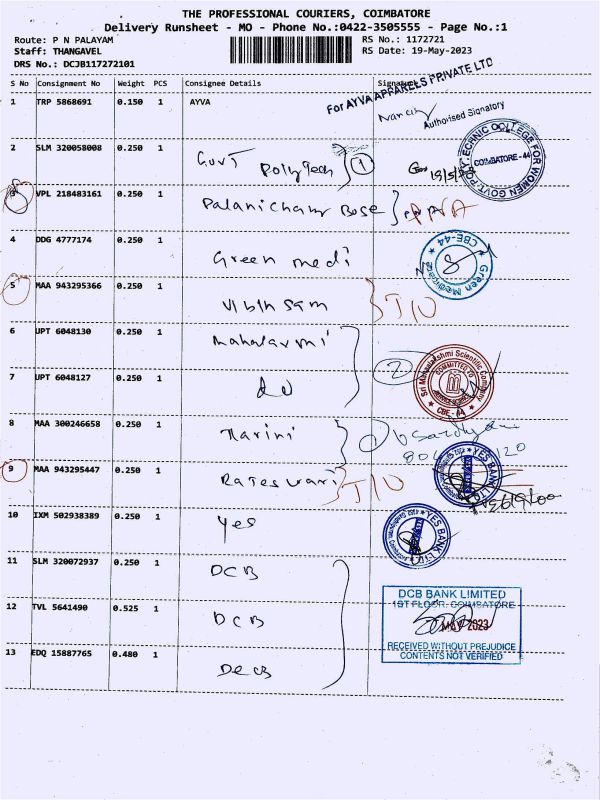 THE PROFESSIONAL COURIERS, COIMBATORE
Delivery Runsheet - MO - Phone No.:0422-3505555 - Page No.:1
Route: P N PALAYAM RS No.: 1172721
Staff: THANGAVEL RS Date: 19-May-2023
DRS No.: DCJB117272101
S No Consignment No Weight PCS Consignee Details Signature
For AYVA APPARELS PRIVATE LTD
1 TRP 5868691 0.150 1 AYVA
Authorised Signatory
2 SLM 320058008 0.250 1 Govt Polytech 1
COIMBATORE-44
3 VPL 218483161 0.250 1 Palanichamy Bose
4 DDG 4777174 0.250 1 Green medi
CBE-44
5 MAA 943295366 0.250 1 Vibin Sam
6 UPT 6048130 0.250 1 Mahalaxmi
7 UPT 6048127 0.250 1 do 2
Sri Mahalakshmi Scientific Company
COMMITTED TO
CBE-44
8 MAA 300246658 0.250 1 Harini
9 MAA 943295447 0.250 1 Rajeswari
YES BANK LTD
10 IXM 502938389 0.250 1 Yes
YES BANK LTD
11 SLM 320072937 0.250 1 DCB
DCB BANK LIMITED
1ST FLOOR, COIMBATORE
12 TVL 5641490 0.525 1 DCB
MAY 2023
RECEIVED WITHOUT PREJUDICE
CONTENTS NOT VERIFIED
13 EDQ 15887765 0.480 1 DCB